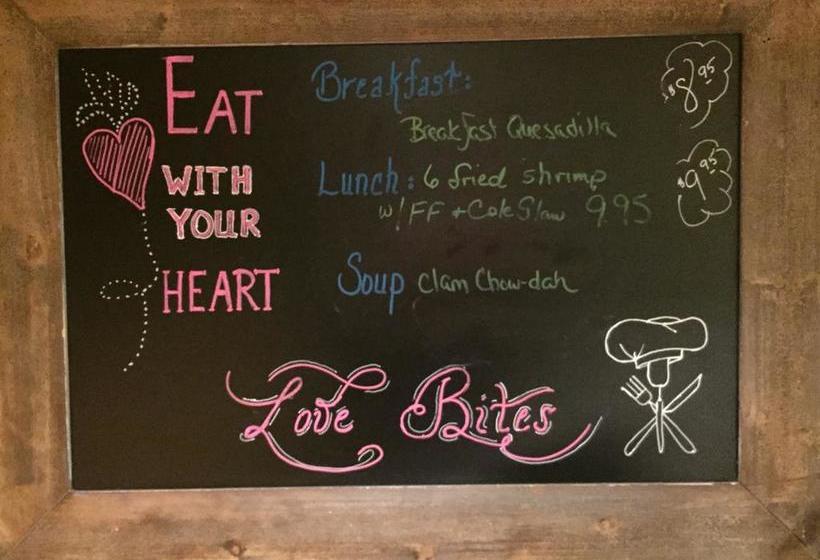 EAT
WITH
YOUR
HEART
Breakfast:
Breakfast Quesadilla
$8.95
Lunch: 6 fried shrimp
w/ FF + Cole Slaw 9.95
$9.95
Soup Clam Chow-dah
Love Bites